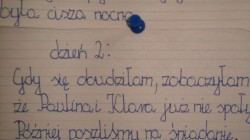 była cisza nocna
dzień 2:
Gdy się obudziłam, zobaczyłam
że Paulina i Klara już nie śpią
Później poszliśmy na śniadanie,